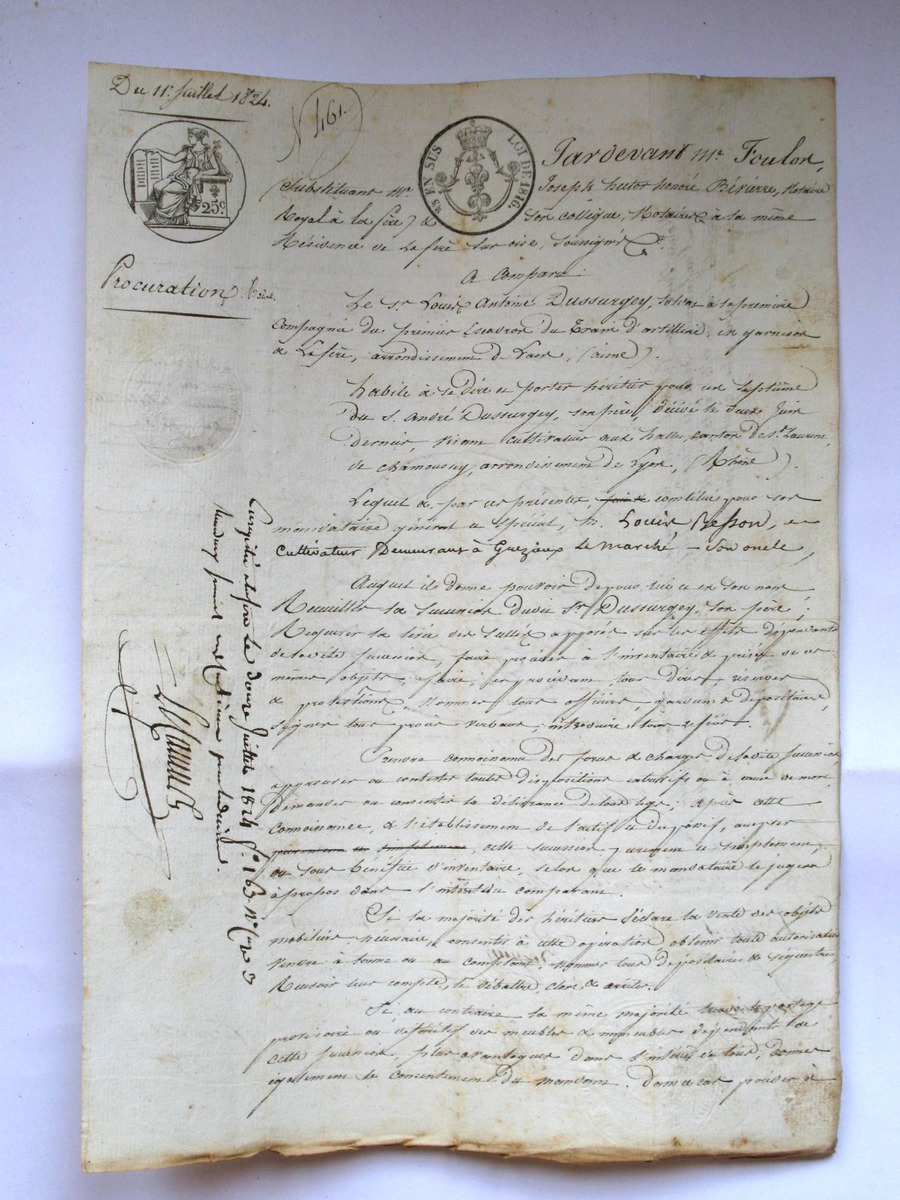 Du 11 Juillet 1824.
N 461.
25 EN SUS
LOI DE 1816.
25c
Pardevant Me Foulon,
(Substituant Me Joseph hector honoré Bévierre, Notaire
Royal à La fère) & son collègue, Notaires à la même
Résidence de La fère sur oise, soussignés
A Comparu:
Procuration
Le Sr Louis Antoine Dussurgey, soldat à la première
Compagnie du premier Escadron du Train d'artillerie, en garnison
à La fère, arrondissement de Laon, (aisne).
habile à se dire et porter héritier pour un septième
du S. André Dussurgey, son père, décédé le deux Juin
dernier, vivant cultivateur aux halles, canton de St Laurent
de chamousset, arrondissement de Lyon, (Rhône).
Lequel a, par ces présentes, constitué pour son
mandataire général et spécial, M. Louis Besson,
Cultivateur Demeurant à Grezieux le Marché - Son oncle,
Auquel il donne pouvoir de pour lui et en son nom
Recueillir la succession dudit Sr Dussurgey, son père;
Requérir la levée des scellés apposés sur les effets dépendants
de ladite succession, faire procéder à l'inventaire & prisée de ces
mêmes objets, faire, en procédant, tous dires, réserves
& protestations, nommer tous officiers, gardiens & dépositaires,
signer tous procès verbaux, introduire tous référés.
Prendre connoissance des forces & charges de ladite succession
approuver ou contester toutes dispositions entrevifs ou à cause de mort
Demander ou consentir la délivrance de tous legs; après cette
connoissance, & l'établissement de l'actif et du passif, accepter
purement et simplement, cette succession purement et simplement,
ou sous bénéfice d'inventaire, selon que le mandataire le jugera
à propos dans l'intérêt du comparant.
Si la majorité des héritiers déclare la vente des objets
mobiliers nécessaire, consentir à cette opération, obtenir toute autorisation
vendre à terme ou au comptant, nommer tous dépositaires & séquestres,
Recevoir leur compte, le débattre, clore & arrêter.
Si, au contraire la même majorité trouvait le partage
provisoire ou définitif des meubles & immeubles dépendants de
cette succession, plus avantageux dans l'intérêt de tous, donner
également le consentement du mandant. Dans ce cas pouvoir de
Enregistré à La fère Le douze Juillet 1824 fo 163 No Case 3